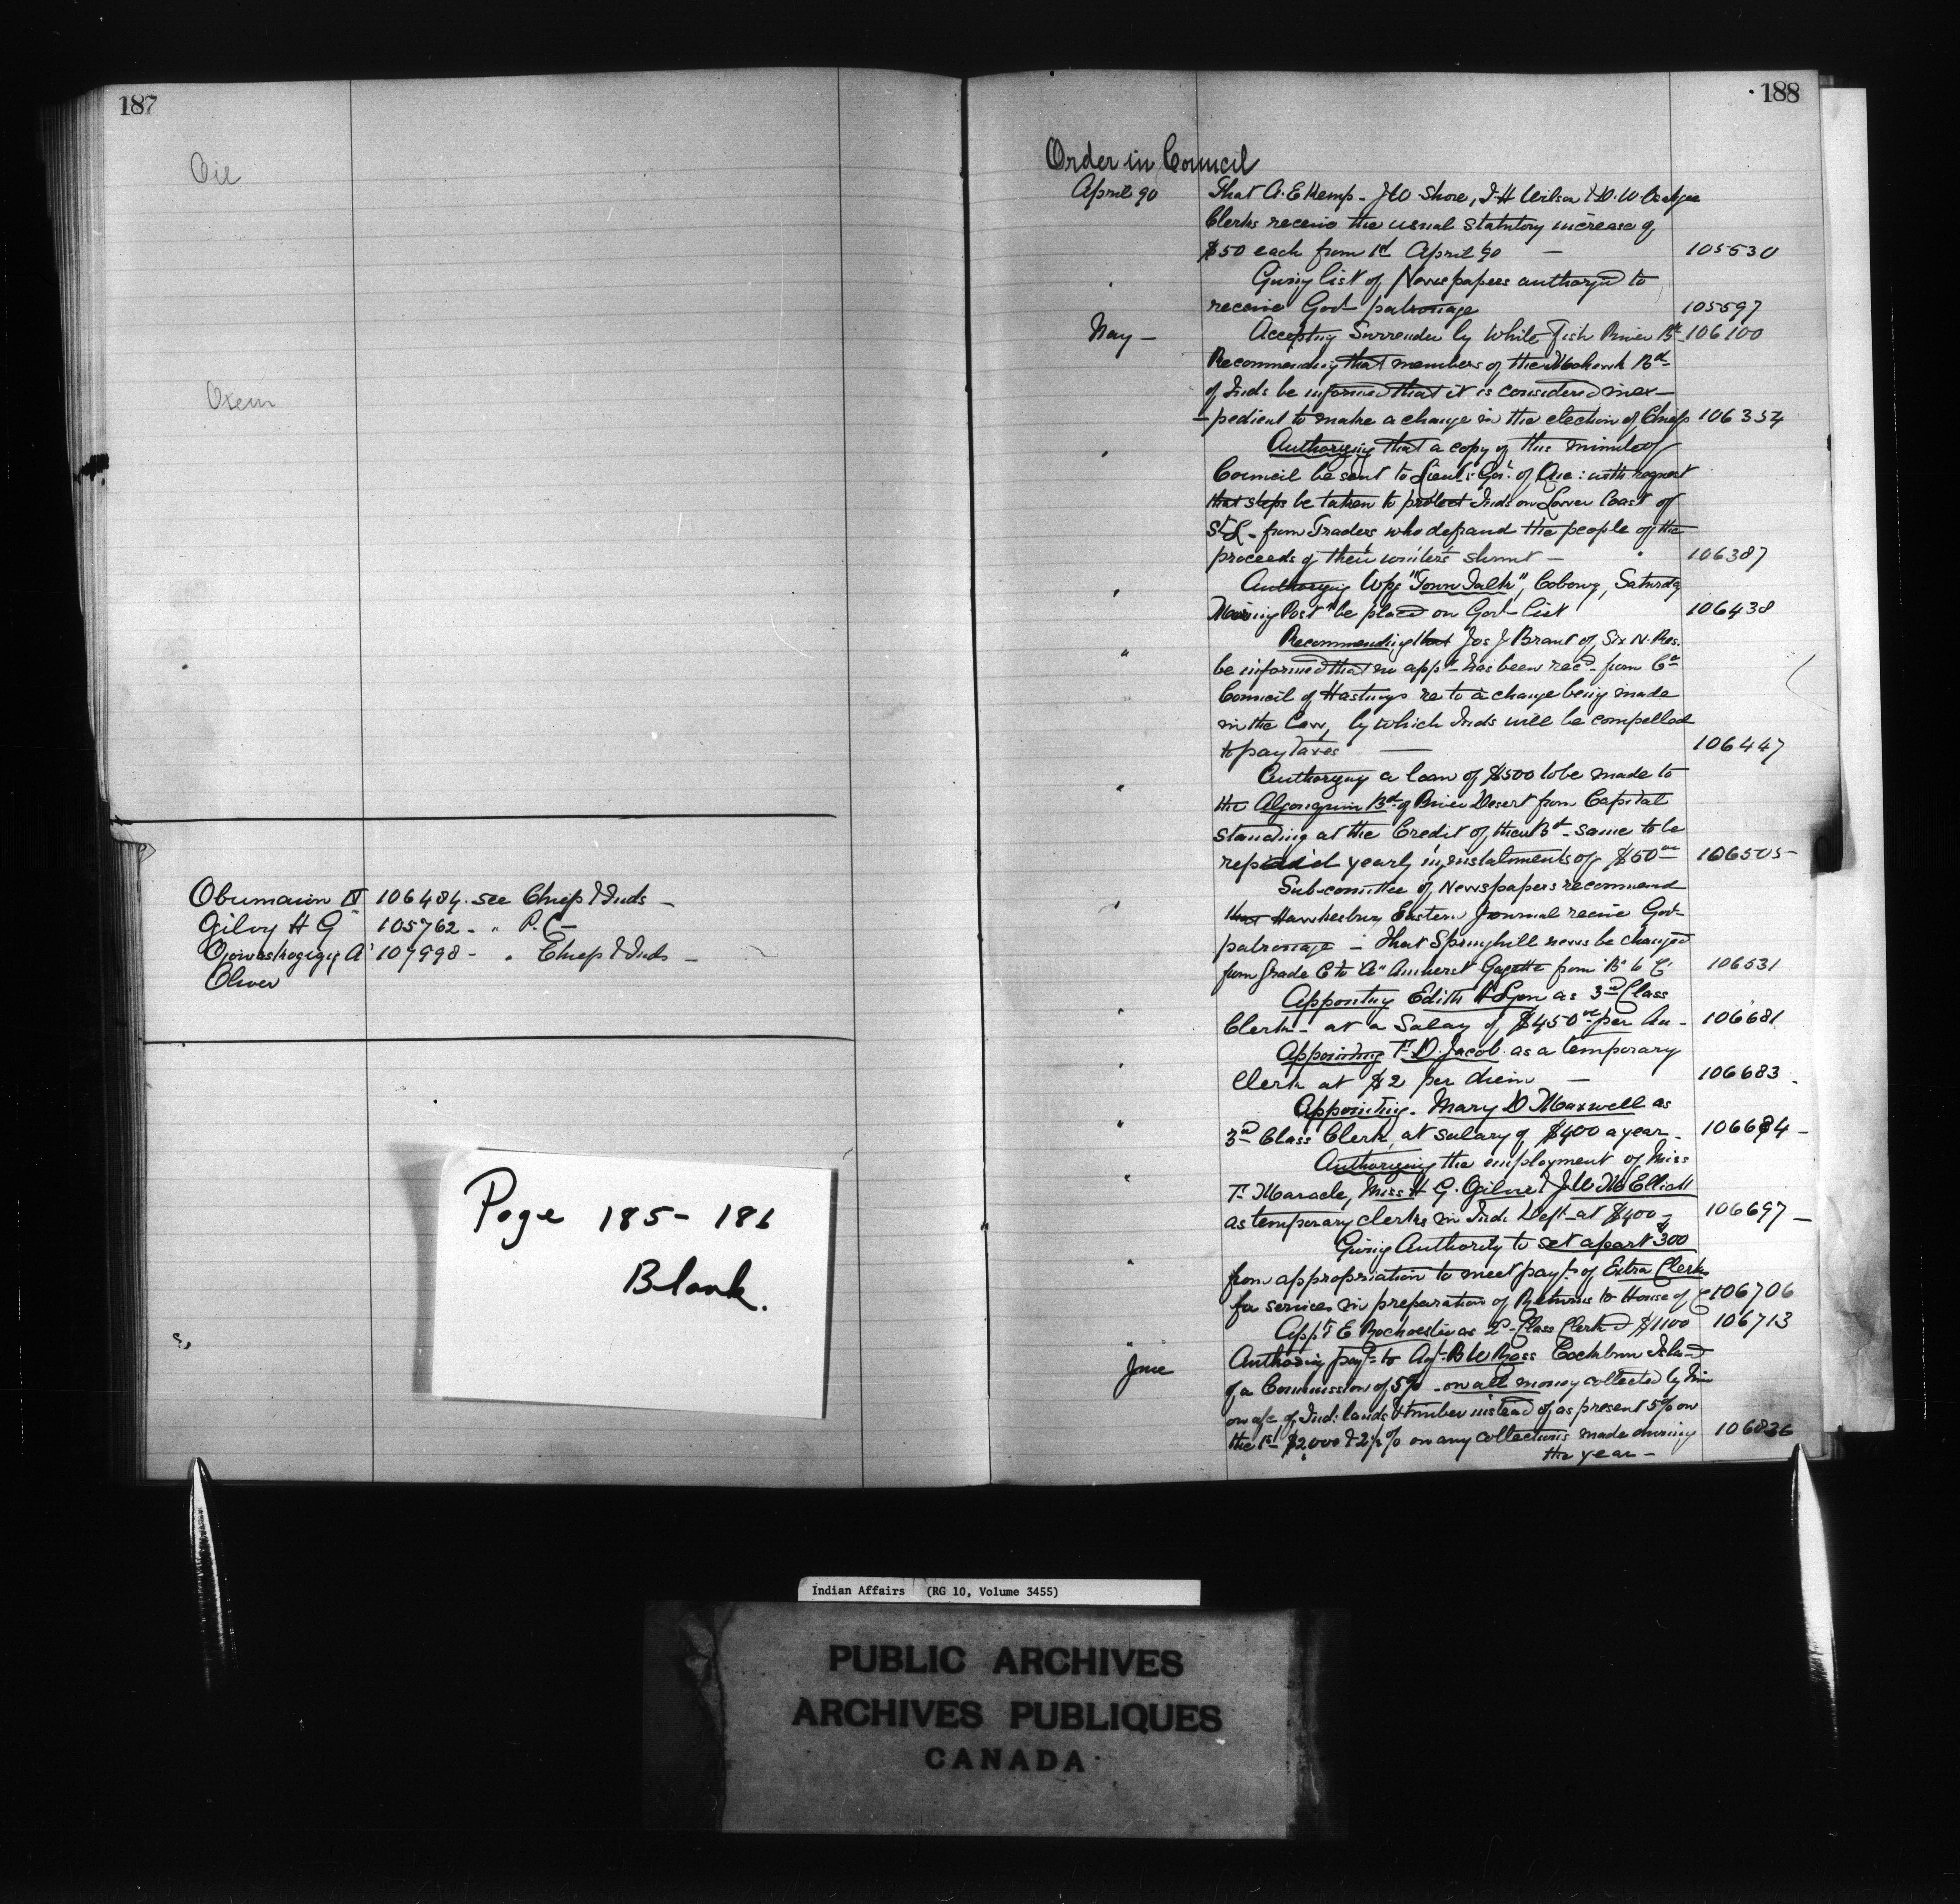 187
Oil
Oxen
Obumsawin N 106484. see Chiefs & Inds -
Gilvy H G 105762 - " P. C -
107998 - " Chiefs & Inds -
Oliver
Page 185-186
Blank.
188
Order in Council
April 90 That A. E Kemp - J W Shore, J H Wilson & D. W.
Clerks receive the usual Statutory increase of
$50 each from 1st April 90 - 105530
Giving list of Newspapers authorized to
receive Govt patronage 105597
May - Accepting Surrender by White Fish River Bd 106100
Recommending that members of the Mohawk Bd
of Inds be informed that it is considered inex-
-pedient to make a change in the election of Chiefs 106354
" Authorizing that a copy of this minute of
Council be sent to Lieut: Gov. of Que: with request
that steps be taken to protect Inds on Lower Coast of
St L - from Traders who defraud the people of the
proceeds of their winter's - 106387
" Authorizing "Town Talk", Cobourg, Saturday
Morning Post" be placed on Govt List 106438
" Recommending that Jos J Brant of Six N. Res.
be informed that no appn has been recd from Co
Council of Hastings re to a change being made
in the Law, by which Inds will be compelled
to pay Taxes - 106447
" Authorizing a loan of $500 to be made to
the Algonquin Bd of River Desert from Capital
standing at the Credit of their Bd - same to be
repaid yearly in instalments of $50 00 106505-
" Sub-comittee of Newspapers recommend
that Hawkesbury Eastern Journal receive Govt
patronage - that Springhill news be changed
from Grade C to "A" Amherst Gazette from "B" to C 106531
" Appointing Edith H Lyon as 3rd Class
Clerk - at a Salary of $450 00 per An - 106681
" Appointing F. D. Jacob as a temporary
Clerk at $2 per diem - 106683 -
" Appointing - Mary D Maxwell as
3rd Class Clerk, at salary of $400 a year - 106684 -
" Authorizing the employment of Miss
F. Maracle, Miss H G. Gilvy & J W McElliott
as temporary clerks in Ind. Dept at $400 - 106697 -
" Giving Authority to set apart $300
from appropriation to meet payt of Extra Clerks
for services in preparation of Returns to House of C 106706
" Appt E Rochester as 2d Class Clerk @ $1100 106713
June Authorizing payt to Agt B W Ross Cockburn Island
of a Commission of 5% - on all money collected by him
on a/c of Ind: lands & timber instead of as present 5% on
the 1st $2,000 & 2½% on any collections made during 106836
the year -
Indian Affairs (RG 10, Volume 3455)
PUBLIC ARCHIVES
ARCHIVES PUBLIQUES
CANADA